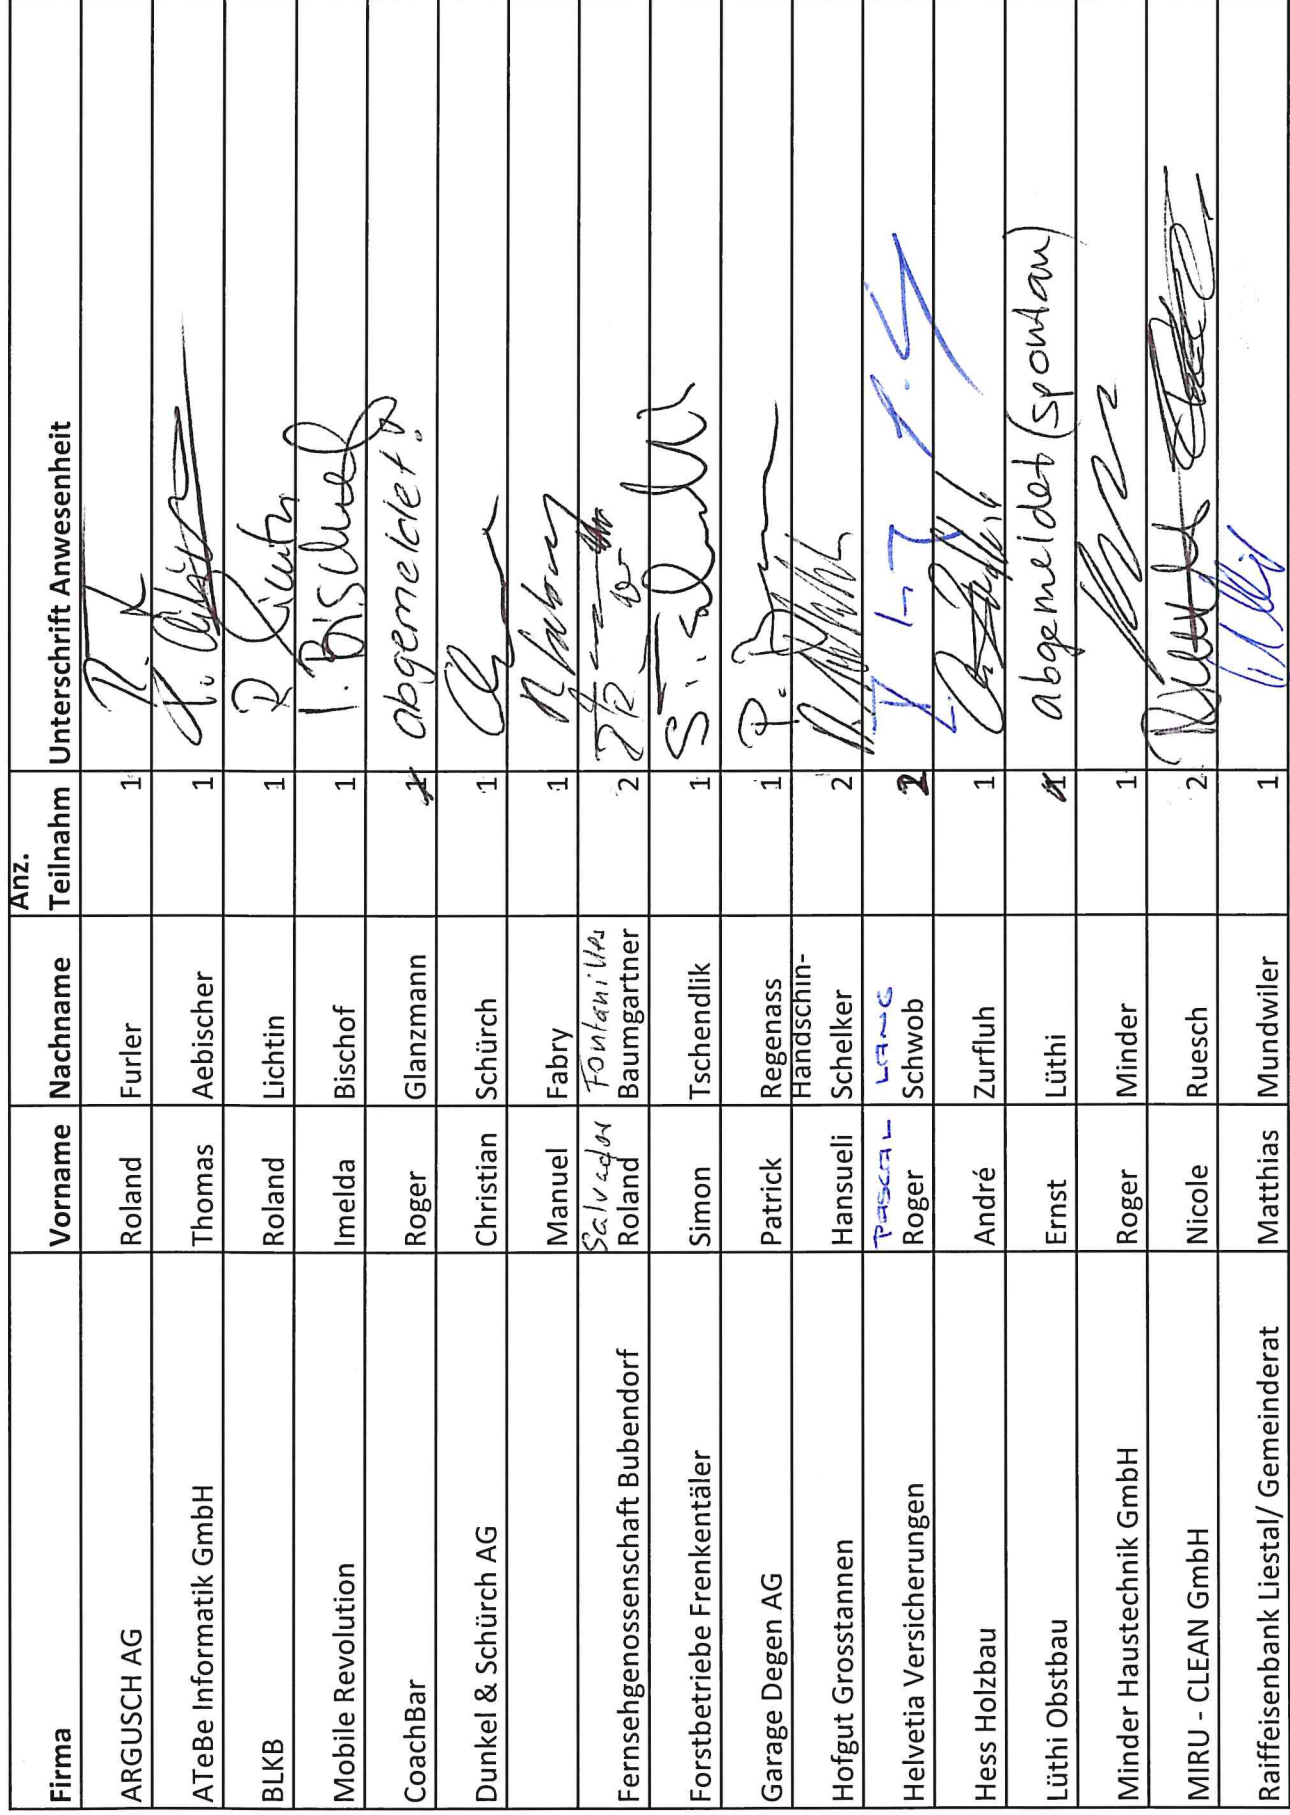 Firma Vorname Nachname Anz. Teilnahm Unterschrift Anwesenheit
ARGUSCH AG Roland Furler 1
ATeBe Informatik GmbH Thomas Aebischer 1
BLKB Roland Lichtin 1
Mobile Revolution Imelda Bischof 1 I. Bischof
CoachBar Roger Glanzmann 1 abgemeldet!
Dunkel & Schürch AG Christian Schürch 1
Manuel Fabry 1
Salvador Fontanilles
Fernsehgenossenschaft Bubendorf Roland Baumgartner 2
Forstbetriebe Frenkentäler Simon Tschendlik 1
Garage Degen AG Patrick Regenass 1
Hofgut Grosstannen Hansueli Handschin-Schelker 2
PASCAL LANG
Helvetia Versicherungen Roger Schwob 2
Hess Holzbau André Zurfluh 1
Lüthi Obstbau Ernst Lüthi 1 abgemeldet (spontan)
Minder Haustechnik GmbH Roger Minder 1
MIRU - CLEAN GmbH Nicole Ruesch 2
Raiffeisenbank Liestal/ Gemeinderat Matthias Mundwiler 1